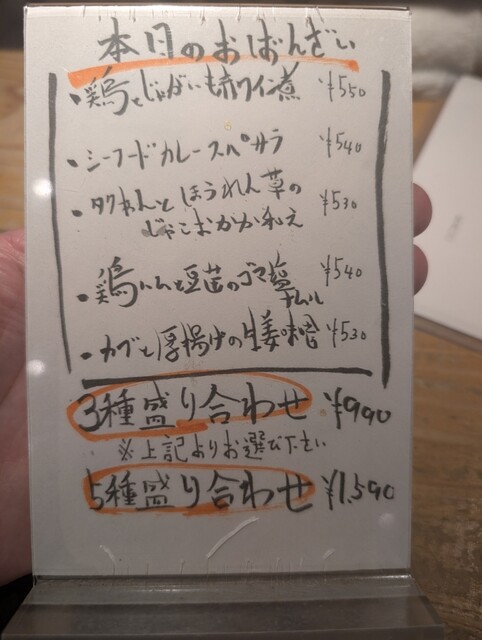 本日のおばんざい
・鶏とじゃがいも赤ワイン煮 ¥550
・シーフードカレースパサラ ¥540
・タクわんとほうれん草の ¥530
じゃこおかか和え
・鶏ハムと豆苗のゴマ塩ナムル ¥540
・カブと厚揚げの生姜味噌 ¥530
3種盛り合わせ ¥990
※上記よりお選び下さい
5種盛り合わせ ¥1,590